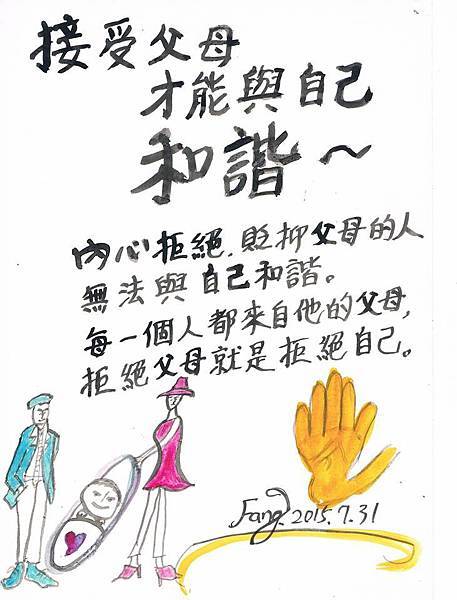 接受父母
才能與自己
和諧~
內心拒絕.貶抑父母的人
無法與自己和諧。
每一個人都來自他的父母,
拒絕父母就是拒絕自己。
Fang 2015.7.31